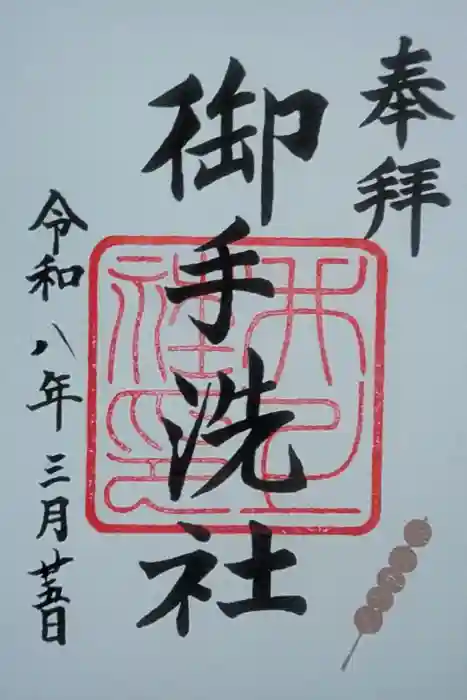 奉拝
御手洗社
令和八年三月廿五日